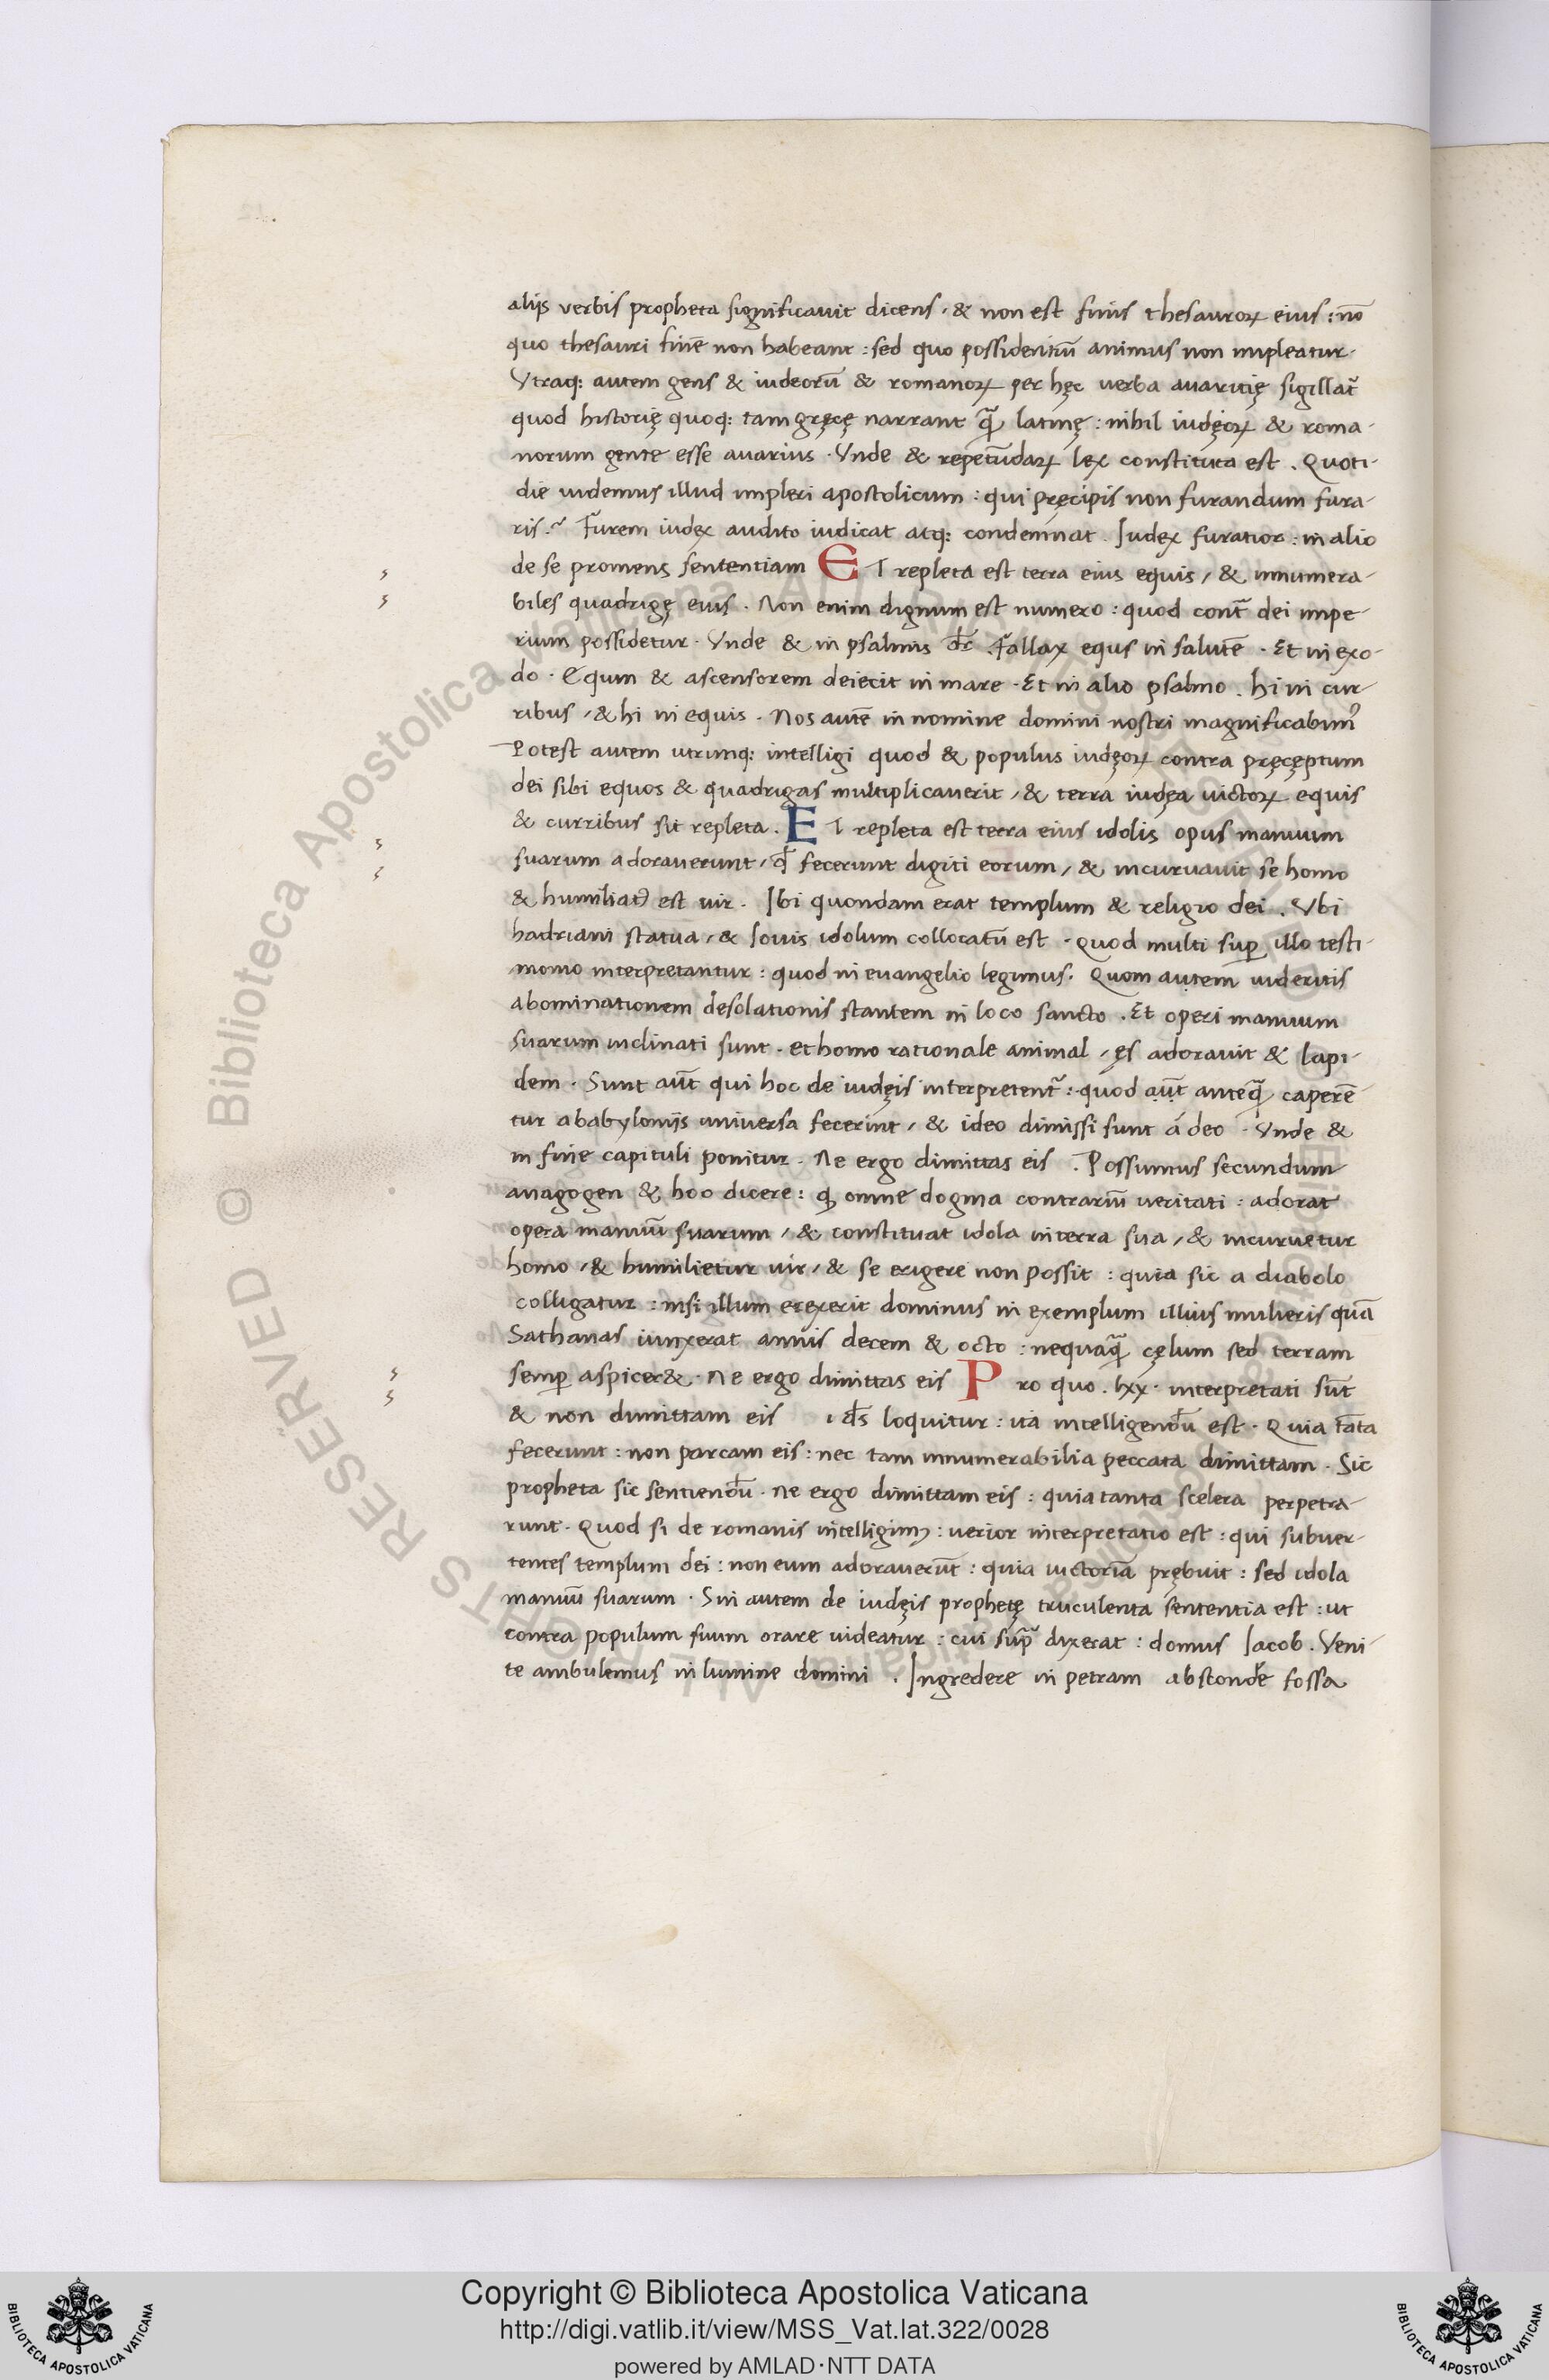 alijs verbis propheta significauit dicens, & non est finis thesauroꝝ eius: nō
quo thesauri finē non habeant: sed quo possidentiū animus non impleatur.
Vtraq; autem gens & iudeorū & romanoꝝ per hęc verba auaritię sigillat᷑
quod historię quoq; tam gręcę narrant q̃ latinę: nihil iudęoꝝ & roma-
norum gente esse auarius. Vnde & repetūdaꝝ lex constituta est. Quoti-
die uidemus illud impleri apostolicum: qui pręcipis non furandum fura-
ris? Furem iudex audito iudicat atq; condemnat. Iudex furatior: in alio
de se promens sententiam ET repleta est terra eius equis, & innumera-
biles quadrigę eius. Non enim dignum est numero: quod cont̃ dei impe-
rium possidetur. Vnde & in psalmis dr̄. Fallax equs in salutē. Et in exo-
do. Equm & ascensorem deiecit in mare. Et in alio psalmo. hi in cur-
ribus, & hi in equis. Nos autē in nomine domini nostri magnificabimꝰ
Potest autem utrunq; intelligi quod & populus iudęoꝝ contra pręcęptum
dei sibi equos & quadrigas multiplicauerit, & terra iudęa uictoꝝ equis
& curribus sit repleta. ET repleta est terra eius idolis opus manuum
suarum adorauerunt, qđ fecerunt digiti eorum, & incuruauit se homo
& humiliatꝰ est uir. Ibi quondam erat templum & religio dei. Vbi
hadriani statua, & Iouis idolum collocatū est. Quod multi suꝑ illo testi-
monio interpretantur: quod in euangelio legimus. Quom autem uideritis
abominationem desolationis stantem in loco sancto. Et operi manuum
suarum inclinati sunt. et homo rationale animal, ęs adorauit & lapi-
dem. Sunt aūt qui hoc de iudęis interpretent᷑: quod aūt anteq̃ caperē
tur a babylonijs uniuersa fecerint, & ideo dimissi sunt á deo. Vnde &
in fine capituli ponitur. Ne ergo dimittas eis. Possumus secundum
anagogen & hoo dicere: ꝙ omne dogma contrariū ueritati: adorat
opera manuū suarum, & constituat idola in terra sua, & incuruetur
homo, & humilietur uir, & se erigere non possit: quia sic a diabolo
colligatur: nisi illum erexerit dominus in exemplum illius mulieris quā
Sathanas iunxerat annis decem & octo: nequaq̃ cęlum sed terram
semꝑ aspicer&. Ne ergo dimittas eis Pro quo. lxx. interpretati sūt
& non dimittam eis ds̄ loquitur: ita intelligendū est. Quia tāta
fecerunt: non parcam eis: nec tam innumerabilia peccata dimittam. Sic
propheta sic sentiendū. ne ergo dimittam eis: quia tanta scelera perpetra-
runt. Quod si de romanis intelligimꝰ: uerior interpretatio est: qui subuer-
tentes templum dei: non eum adorauerūt: quia uictoriā prębuit: sed idola
manuū suarum. Sin autem de iudęis prophetę truculenta sententia est: ut
contra populum suum orare uideatur: cui sup᷑ dixerat: domus Iacob. Veni-
te ambulemus in lumine domini. Ingredere in petram abscondē fossa
Copyright © Biblioteca Apostolica Vaticana
http://digi.vatlib.it/view/MSS_Vat.lat.322/0028
powered by AMLAD·NTT DATA